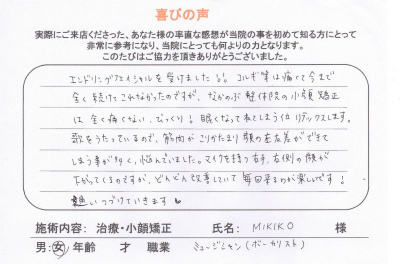 喜びの声
実際にご来店くださった、あなた様の率直な感想が当院の事を初めて知る方にとって
非常に参考になり、当院にとっても何よりの力となります。
このたびはご協力を頂きありがとうございました。
エンドリングフェイシャルを受けました!!。コルギ等は痛くて今まで
全く続けてこれなかったのですが、なかのぶ整体院の小顔矯正
は全く痛くない、びっくり！眠くなってねてしまう位リラックスします。
歌をうたっているので、筋肉がこりかたまり顔の左右差ができて
しまう事が多く、悩んでいました。マイクを持つ右手、右側の顔が
上がってくるのですが、どんどん改善していて毎回来るのが楽しみです！
通いつづけていきます♥
施術内容: 治療・小顔矯正 氏名: MIKIKO 様
男:女 年齢 才 職業 ミュージシャン(ボーカリスト)